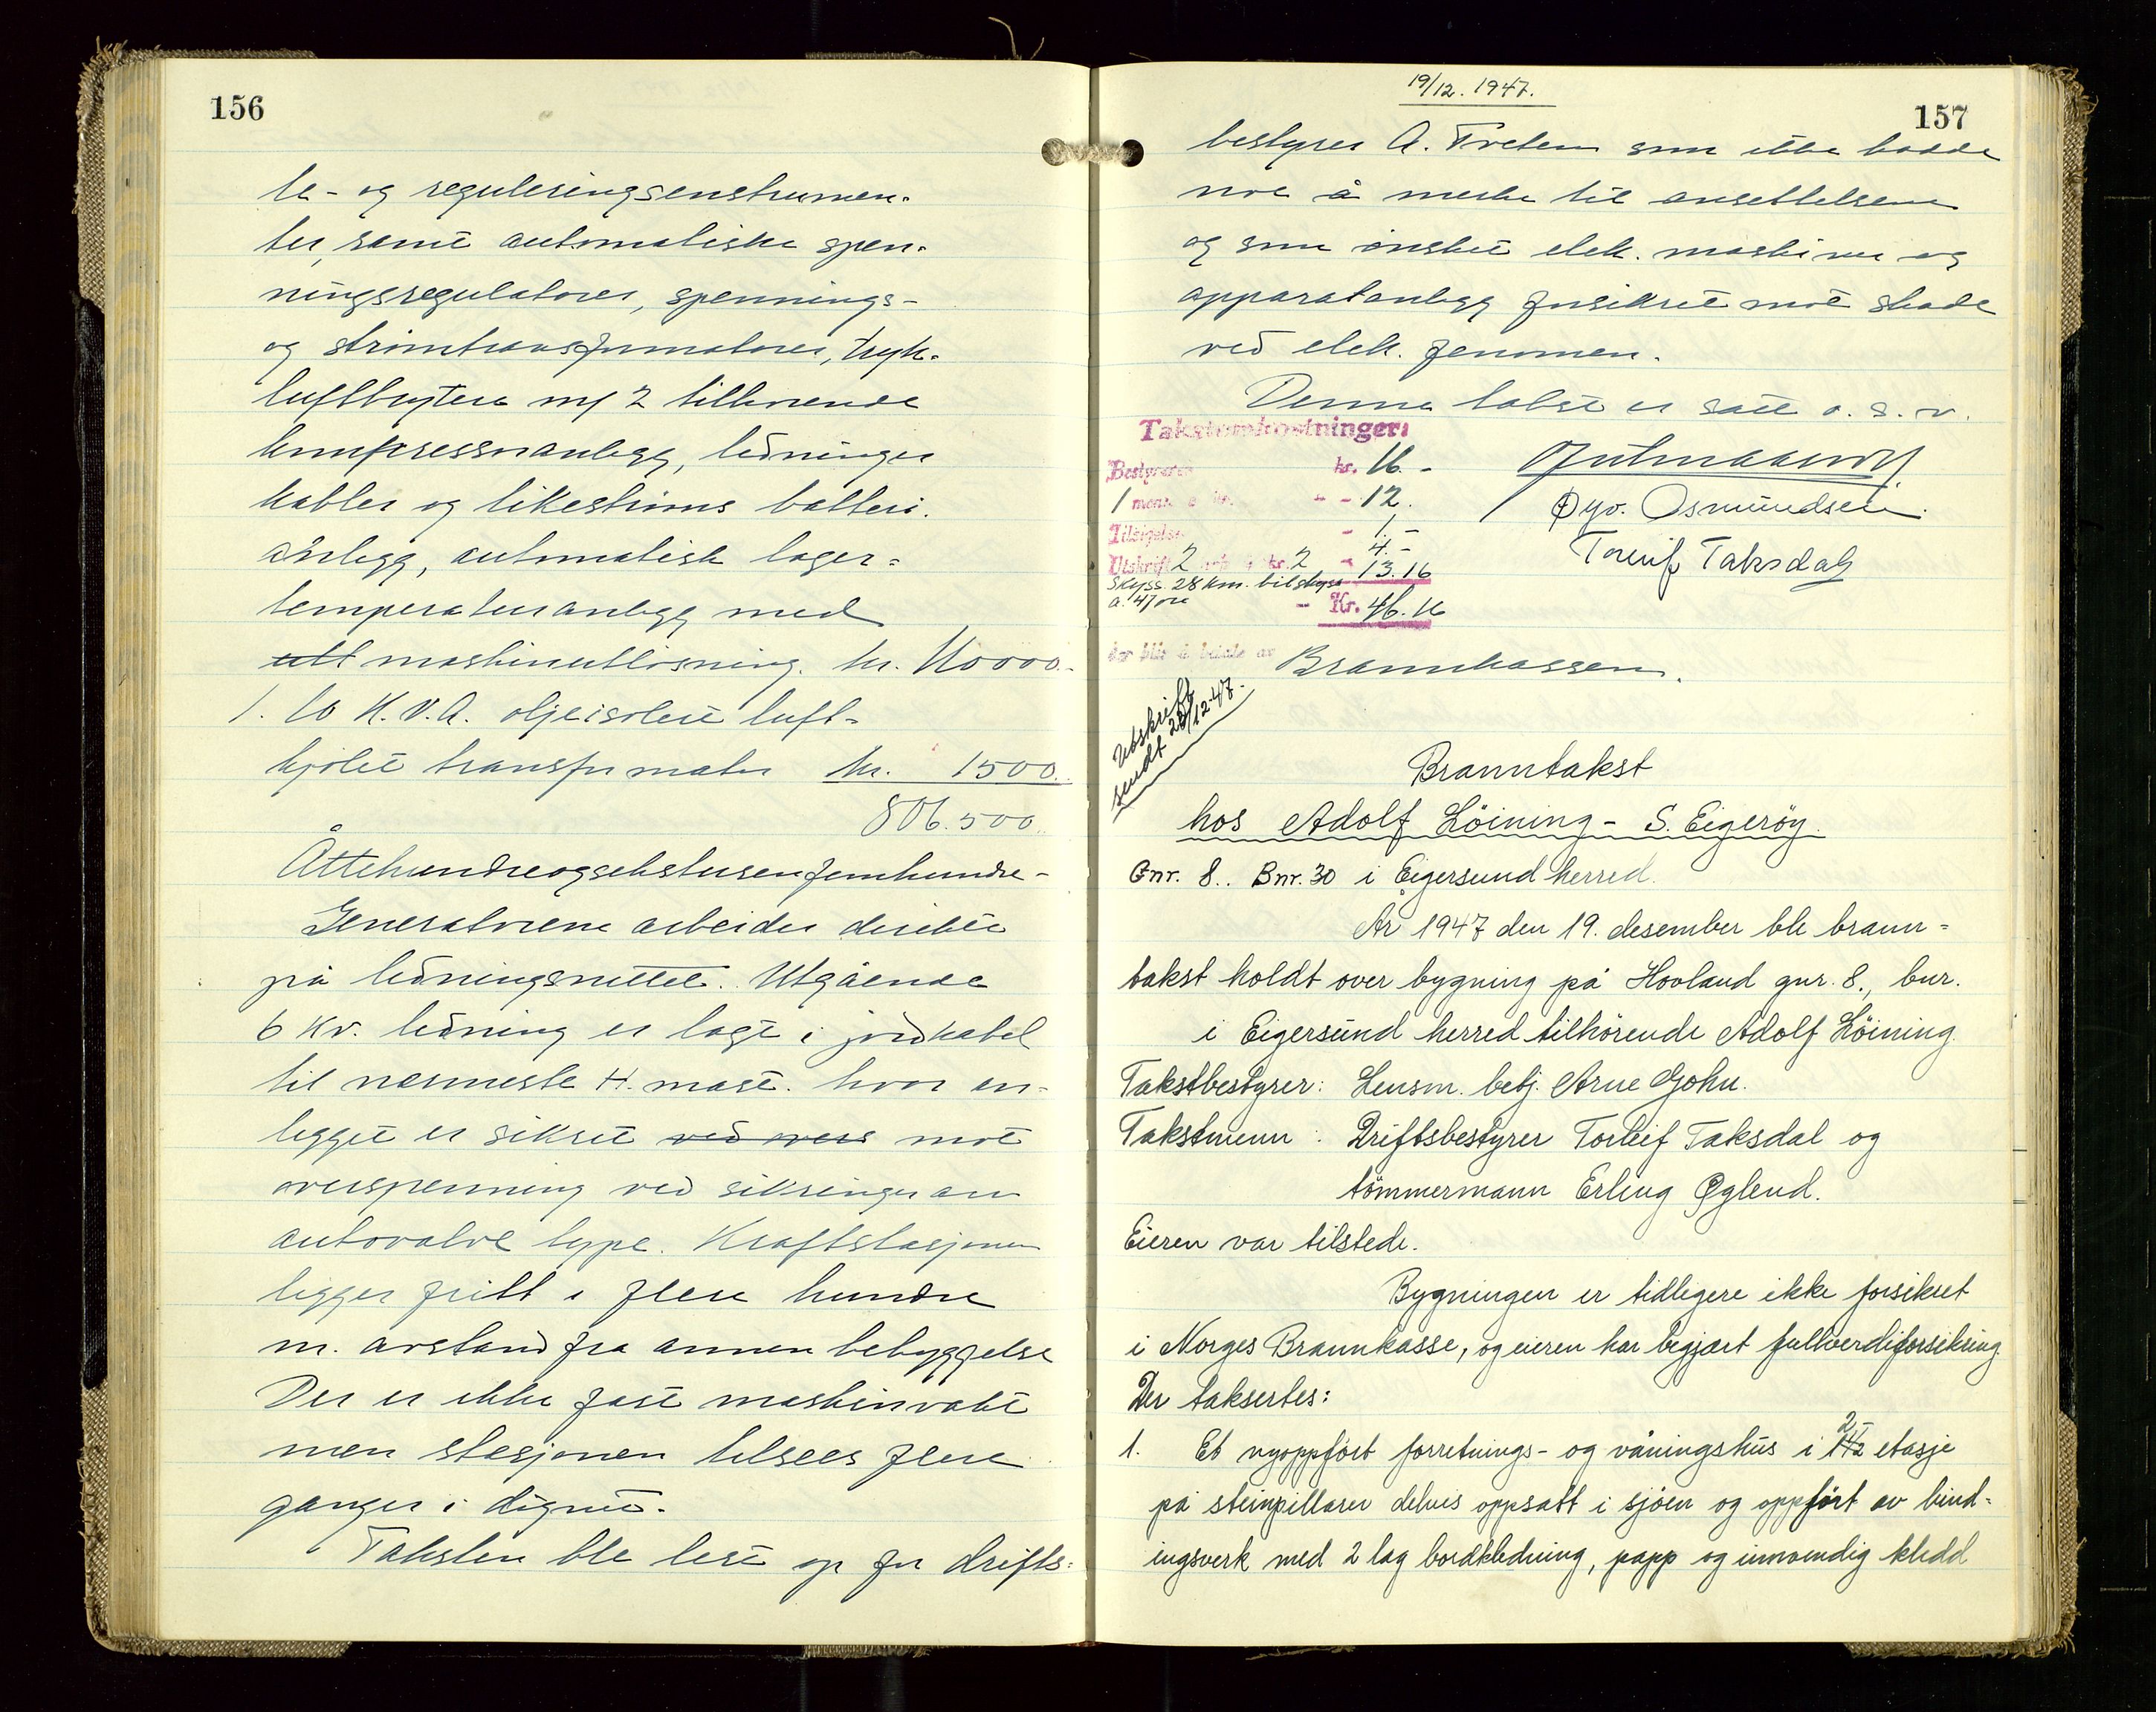 156
le- og reguleringsenstrumen-
ter, samt automatiske spen-
ningsregulatorer, spennings-
og strömtransformatorer, tryk-
luftbrytere m/ 2 tilhörende
kompressoranlegg, ledninger
kabler og likeströms batteri-
anlegg, automatisk lager-
temperaturanlegg med
utl maskinutlösning. kr. 110000.-
1. 10 K.V.A. oljeisolert luft-
kjölet transformator kr. 1500.
806.500.
Åttehundreogsekstusenfemhundre-
Generatorene arbeider direkte
på ledningsnettet. Utgående
6 Kv. ledning er lagt i jordkabel
til nærmeste H. mast. hvor an-
legget er sikret ved overs mot
overspenning ved sikringer av
autovalve type. Kraftstasjonen
ligger fritt i flere hundre
m. avstand fra annen bebyggelse
Der er ikke fast maskinvakt
men stasjonen tilsees flere
ganger i dögnet.
Taksten ble lest op for drifts-
19/12. 1947.
157
bestyrer A. Tveten som ikke hadde
noe å merke til ansettelsene
og som önsket elek. maskiner og
apparatanlegg forsikret mot skade
ved elek. fenomen.
Denne takst er satt o. s. v.
Takstomkostninger:
Bestyreren kr. 16.-
1 menn à kr. - - 12.
Tilsigelse - 1.-
Utskrift 2 ark à kr. 2 - 4.-
Skyss 28 km. bilskyss 13.16
a. 47 öre - Kr. 46.16
Øyv. Osmundsen.
Torleif Taksdal
der blir å betale av Brannkassen.
Utskrift
sendt 20/12-47.
Branntakst
hos Adolf Löining - S. Eigeröy.
Gnr. 8.. Bnr. 30 i Eigersund herred.
År 1947 den 19. desember ble brann=
takst holdt over bygning på Hovland gnr. 8., bnr.
i Eigersund herred tilhörende Adolf Löining.
Takstbestyrer: Lensm. betj. Arne Gohn.
Takstmenn: Driftsbestyrer Torleif Taksdal og
tömmermann Erling Øglend.
Eieren var tilstede.
Bygningen er tidligere ikke forsikret
i Norges Brannkasse, og eieren har begjært fullverdiforsikring.
Der taksertes:
1. Et nyoppfört forretnings- og våningshus i 1 1/2 2 etasje
på steinpillarer delvis oppsatt i sjöen og oppfört av bind-
ingsverk med 2 lag bordkledning, papp og innvendig kledd